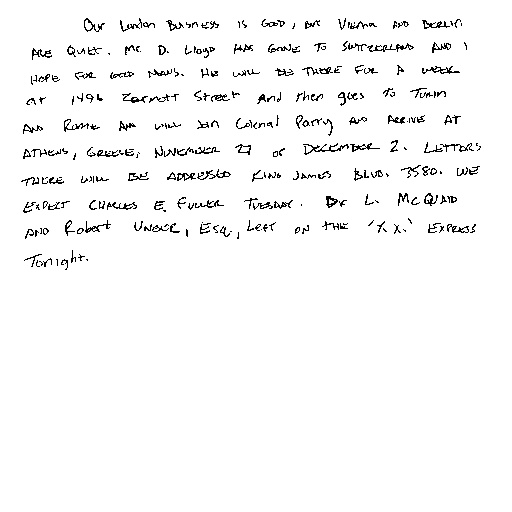 Our London Business is good, but Vienna and Berlin
are quiet. Mr. D. Lloyd has gone to Switzerland and I
hope for good news. He will be there for a week
at 1496 Zermott Street and then goes to Turin
and Rome and will join Colonel Parry and arrive at
Athens, Greece, November 27 or December 2. Letters
there will be addressed King James Blvd. 3580. We
expect Charles E. Fuller Tuesday. Dr L. McQuaid
and Robert Unger, Esq., left on the 'X.X.' Express
Tonight.